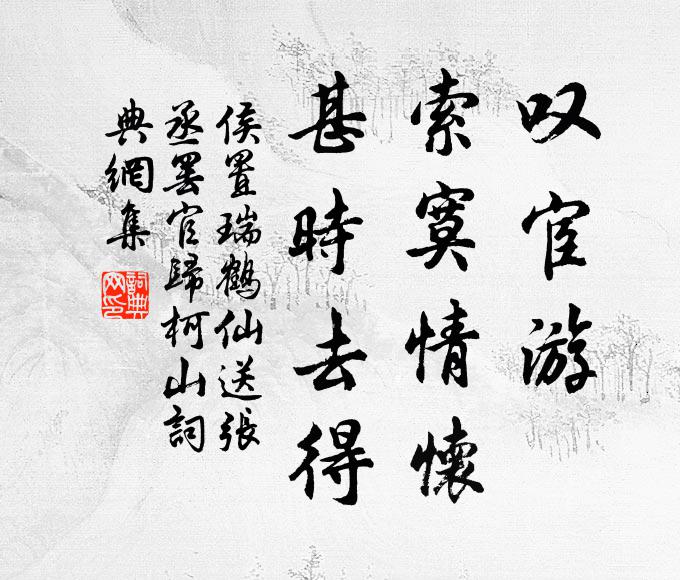 叹宦游
索寞情懷
甚時去得
侯置瑞鶴仙送張
丞罢官歸柯山詞
典網集
詞典网印